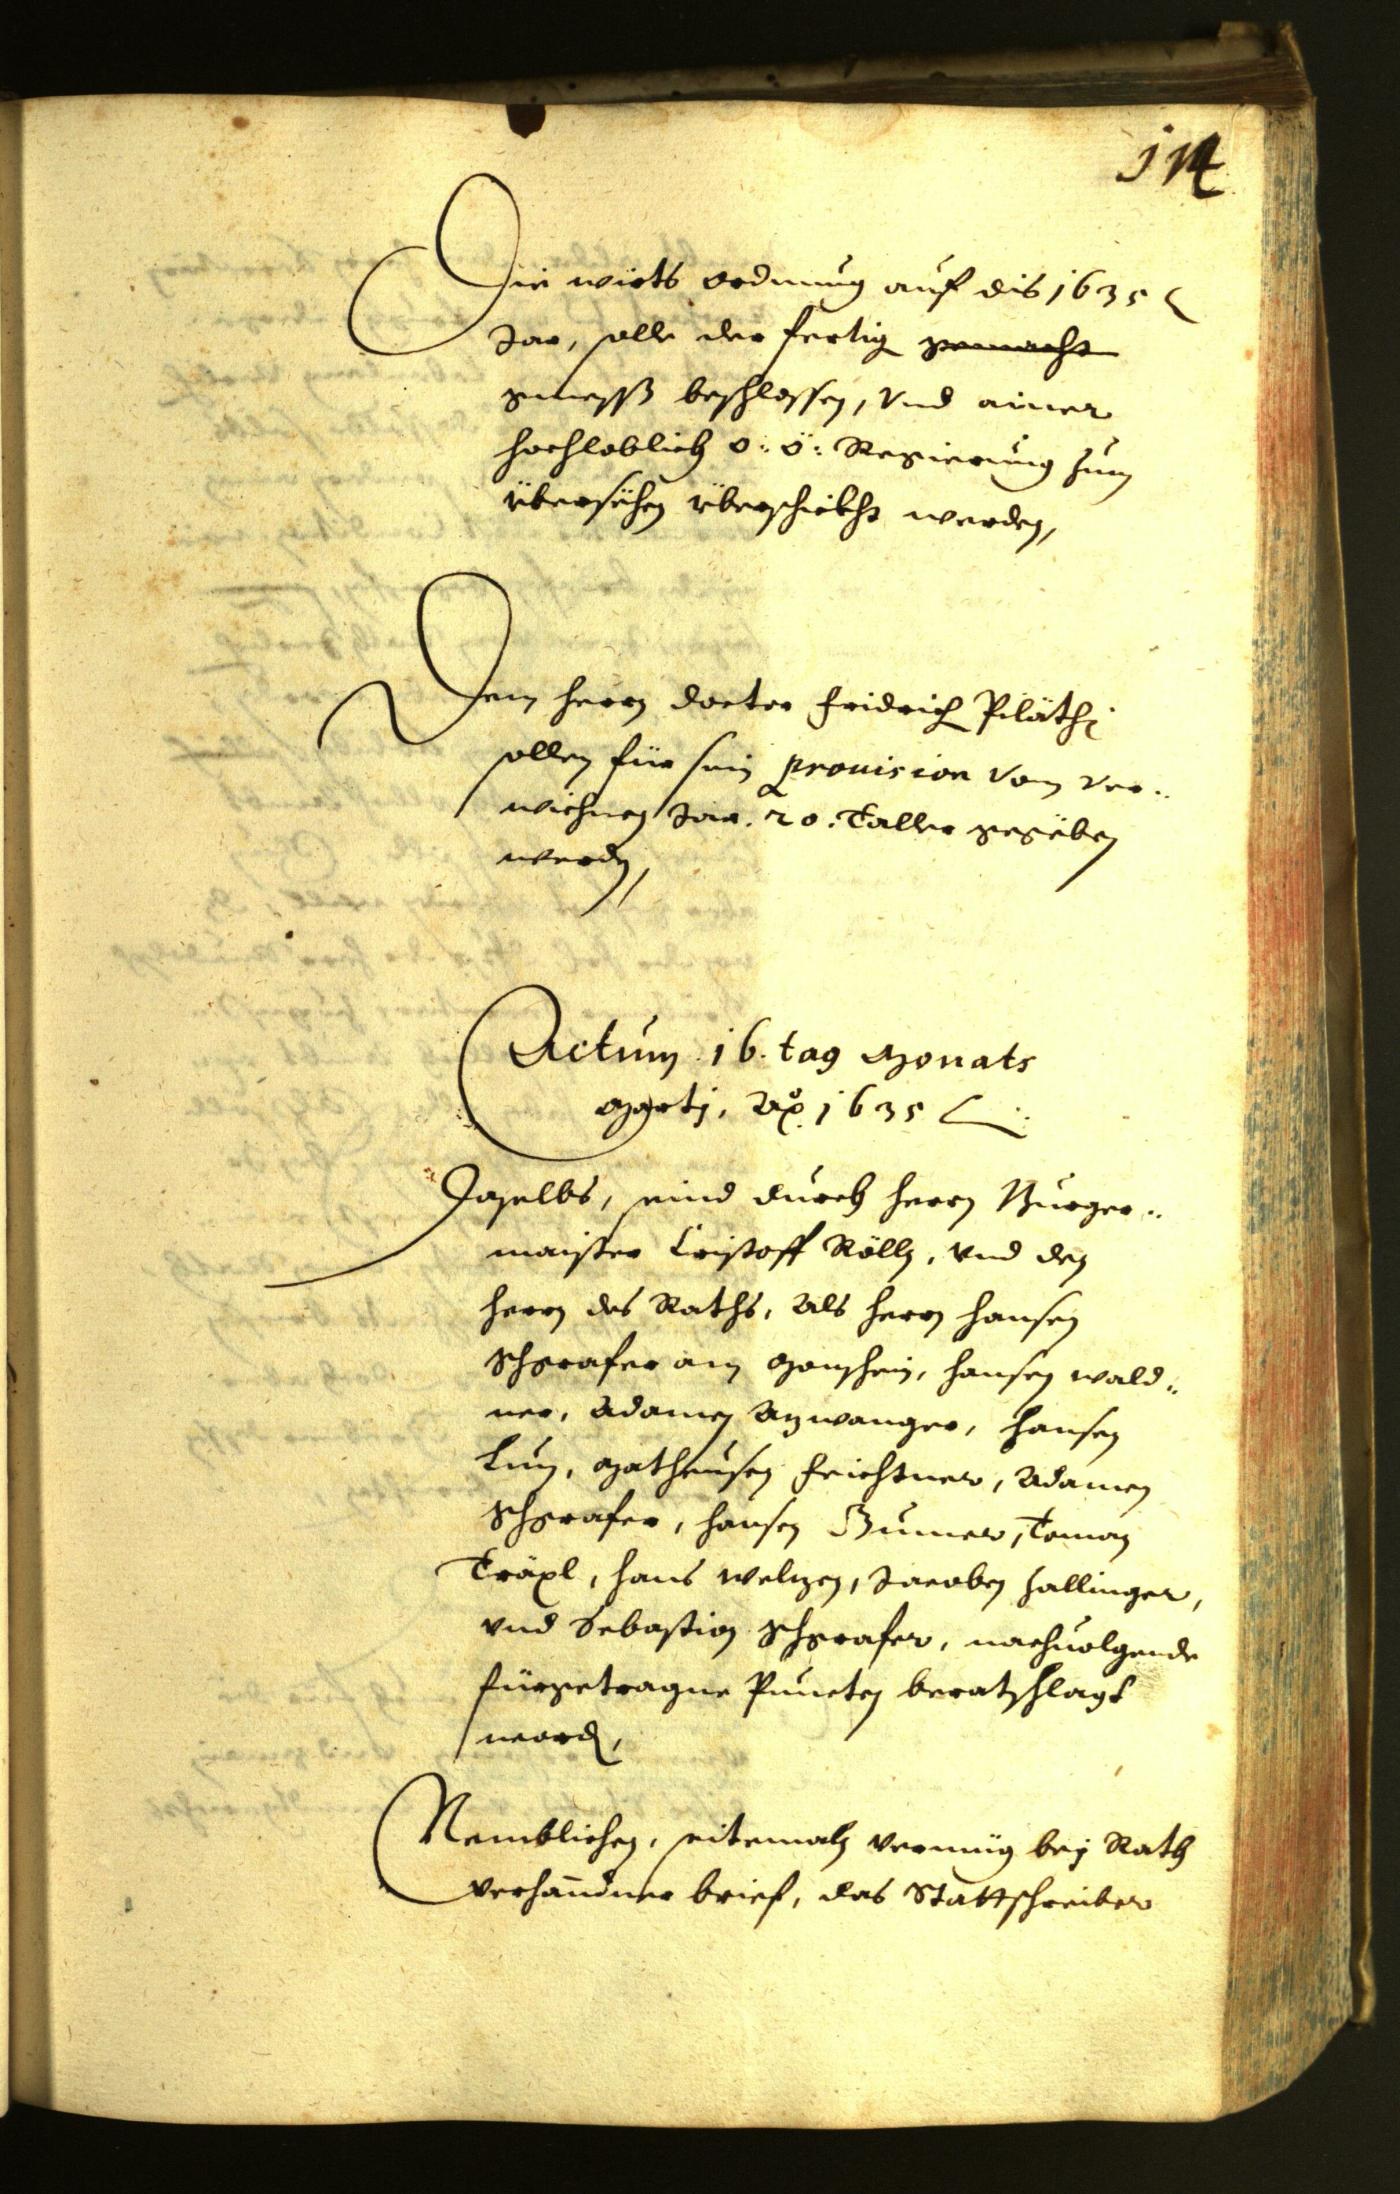 114
Die wirts ordnung auf dis 1635
Jar, solle der fertig gemacht
gmeyß beschlossen, vnd ainer
hochloblich o: ö: Regierung zum
übersëhen überschickht werden,
Dem herrn doctor Fridrich Piläthi
sollen für sein prouision vom ver-
wichnen Jar. 20. Taller gegëben
werdn,
Actum 16. tag Monats
Martj, Ao. 1635
Daselbs, seind durch herrn Burger-
maister Cristoff Röllj, vnd den
herrn des Raths, Als herrn hansen
Schgrafer am Monschein, hansen wald-
ner, Adamen Azwanger, hansen
Lun, Matheusen Feichtner, Adamen
Schgrafer, hansen Zumer, Toman
Träxl, hans Welzen, Jacoben Hallinger,
vnd Sebastion Schgrafer, nachuolgende
fürgetragne Puncten beratschlagt
word,
Nemblichen, seitemaln vermüg bej Rath
verhandner brief, das Stattschreiber